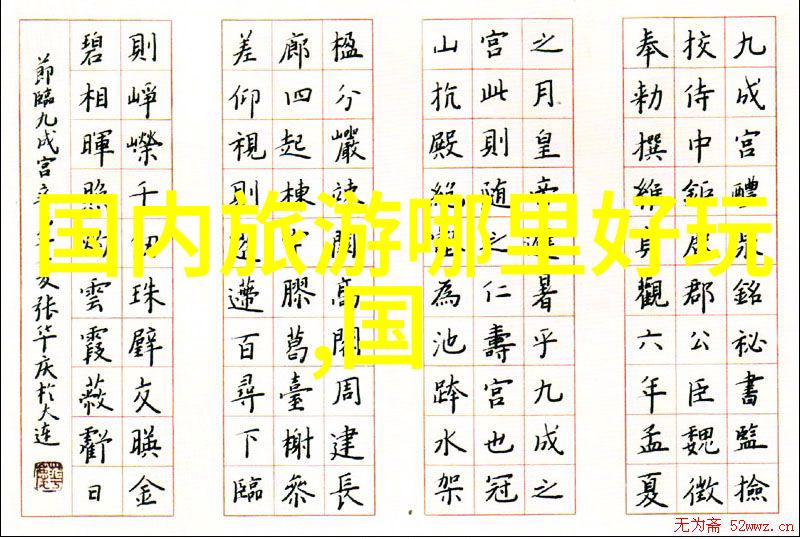 九成宮醴泉銘秘書監撿
挍侍中鉅鹿郡公臣魏徵
奉勅撰維貞觀六年孟夏
之月皇帝避暑乎九成之
宮此則随之仁壽宮也冠
山抗殿絕壑為池跨水架
楹分巖竦闕高閣周建長
廊四起棟宇膠葛臺榭參
差仰視則迢遰百尋下臨
則崢嶸千仞珠璧交暎金
碧相暉照灼雲霞蔽虧日
節臨九成宮張华庆於大连
国内旅游哪里好玩
,国
无为斋 52wwz.cn